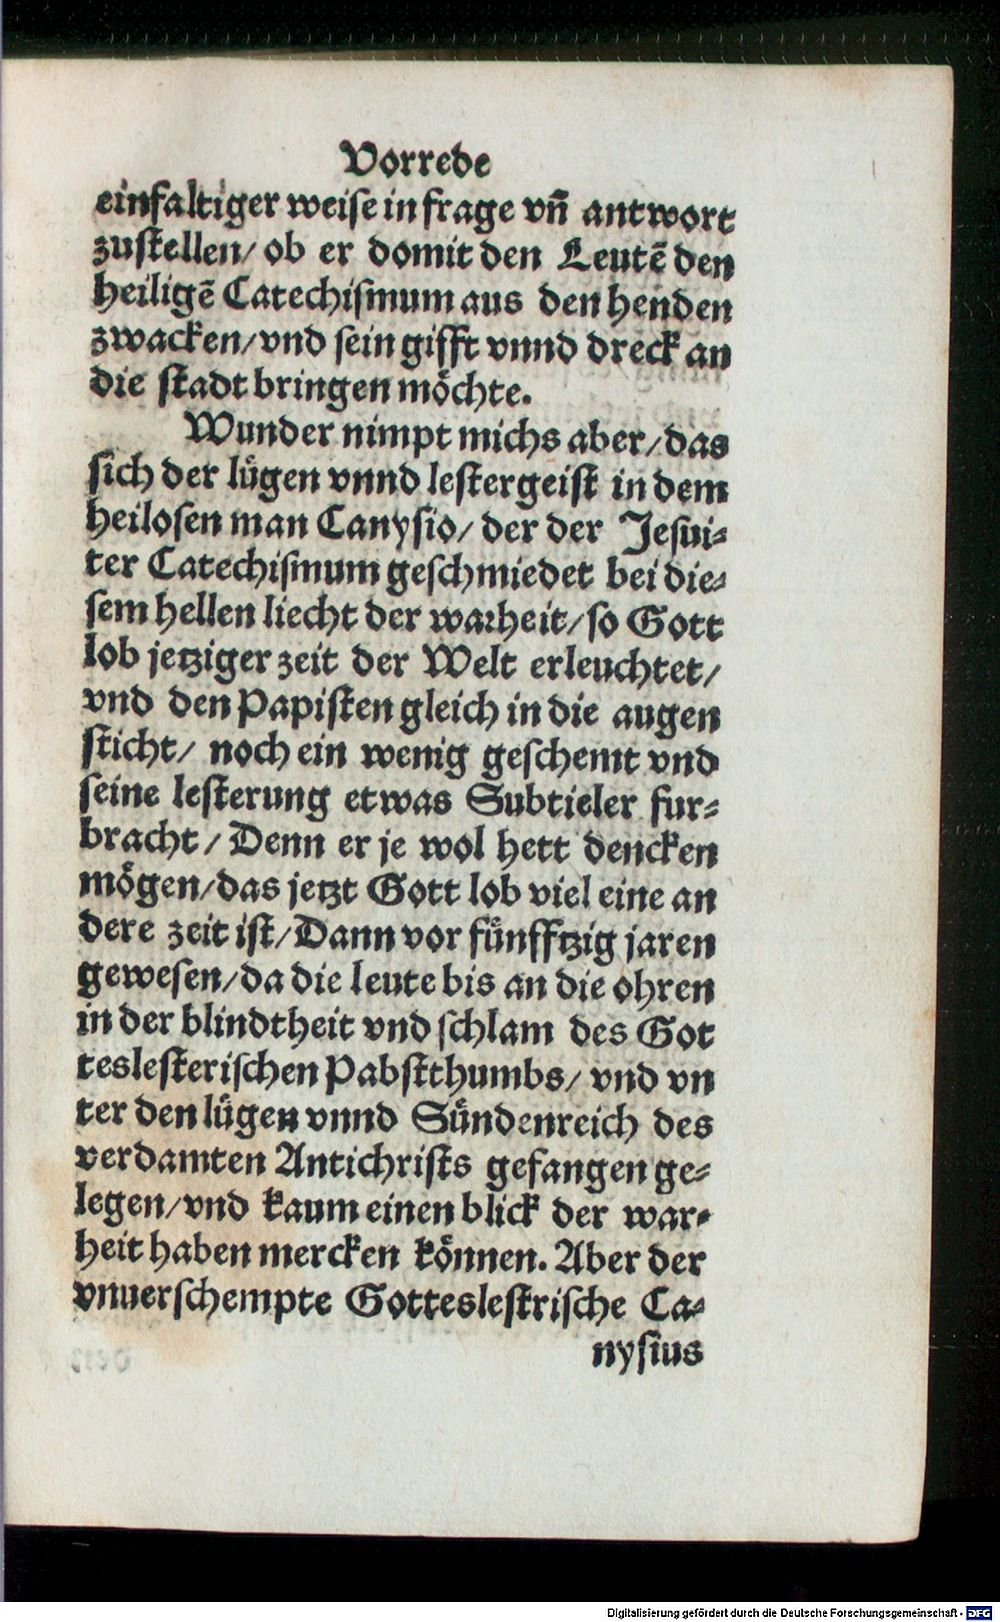 Vorrede
einfaltiger weise in frage vn̄ antwort
zustellen/ ob er domit den Leutē den
heiligē Catechismum aus den henden
zwacken/ vnd sein gifft vnnd dreck an
die stadt bringen möchte.
Wunder nimpt michs aber/ das
sich der lügen vnnd lestergeist in dem
heilosen man Canysio/ der der Jesui-
ter Catechismum geschmiedet bei die-
sem hellen liecht der warheit/ so Gott
lob jetziger zeit der Welt erleuchtet/
vnd den Papisten gleich in die augen
sticht/ noch ein wenig geschemt vnd
seine lesterung etwas Subtieler fur-
bracht/ Denn er je wol hett dencken
mögen/ das jetzt Gott lob viel eine an
dere zeit ist/ Dann vor fünfftzig jaren
gewesen/ da die leute bis an die ohren
in der blindtheit vnd schlam des Got
teslesterischen Pabstthumbs/ vnd vn
ter den lügen vnnd Sündenreich des
verdamten Antichrists gefangen ge-
legen/ vnd kaum einen blick der war-
heit haben mercken können. Aber der
vnuerschempte Gotteslestrische Ca-
nysius
Digitalisierung gefördert durch die Deutsche Forschungsgemeinschaft - DFG